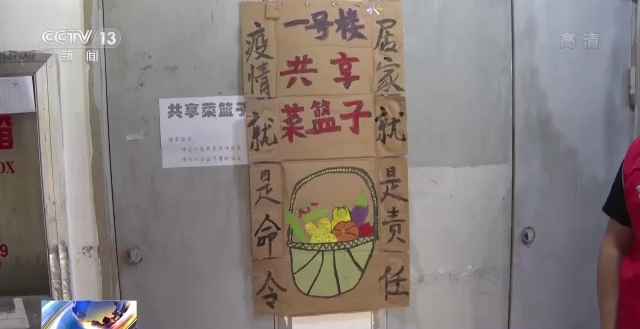 CCTV 13
新闻
高清
疫情就是命令
一号楼
共享
菜篮子
居家就是责任
共享菜篮子
OX
9